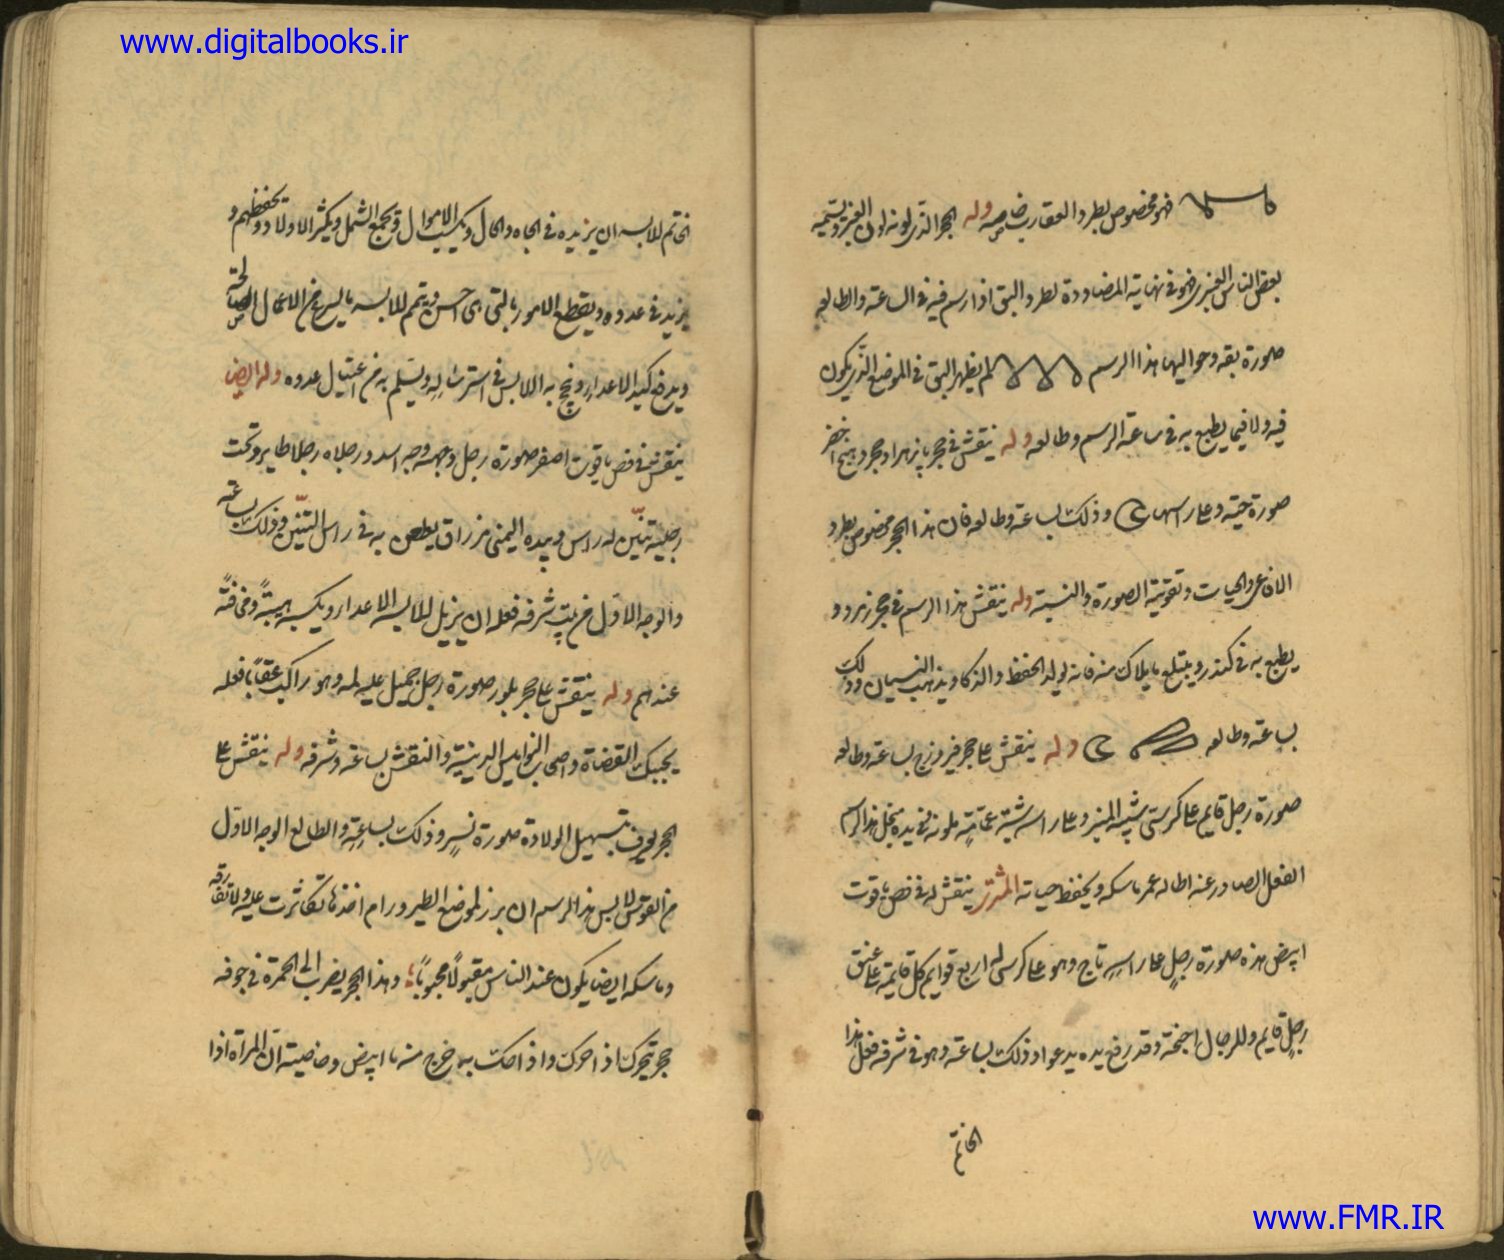 www.digitalbooks.ir
فهو مخصوص بطرد العقارب خاصه وله الحجر الذى لونه لون العنبر ويسميه
بعض الناس العنبرى فهو فى نهاية المضاددة لطرد البق اذا رسم فيه فى الساعة والطالع
صورة بقه وحواليها هذا الرسم لم يظهر البق فى الموضع الذى يكون
فيه ولا فيما يطبع به فى ساعة الرسم وطالعه وله ينقش فى حجر پازهر او حجر دهنج اخضر
صورة حية وعلى راسها وذلك بساعته وطالعه فان هذا الحجر مخصوص بطرد
الافاعى والحيات وتقوية الصورة والنسبة وله ينقش هذا الرسم فى حجر زمرد و
يطبع به فى كندر ويبتلع ما يلاك منه فانه يولد الحفظ والذكا ويذهب النسيان وذلك
بساعته وطالعه وله ينقش على حجر فيروزج بساعته وطالعه
صورة رجل قايم على كرسى شبه المنبر وعلى راسه شبه عمامة ملونه فى يده منجل هذا الرسم
الفعل الصادر عنه اطاله عمر ماسكه ويحفظ حياته المشترى ينقش له فى فص ياقوت
ابيض هذه صورة رجل على راسه تاج وهو على كرسى له اربع قوايم كل قايمة على عنق
رجل قايم وللرجال اجنحة وقد رفع يده يدعوا وذلك بساعته وهو فى شرفه فعل هذا
الخاتم
الخاتم للابسه ان يزيده فى الجاه والحال ويكسب الاموال ويجمع الشمل ويكثر الاولاد ويحفظهم و
يزيد فى عدده ويقطع الامور بالتى هى احسن ويتم للابسه ما يسرع من الاعمال الصالحة
ويدفع كيد الاعداء وينجح به اللابس فى استرشاده ويسلم به من اغتيال عدوه وله ايضا
ينقش فى فص ياقوت اصفر صورة رجل وجهه وجه اسد ورجلاه رجلا طاير وتحت
رجليه تنين له راس وبيده اليمنى مزراق يطعن به فى راس التنين وذلك بساعته
والوجه الاول من بيت شرفه فعله ان يزيل للابسه الاعداء ويكسبه هيبة ومخافة
عندهم وله ينقش على حجر بلور صورة رجل جميل عليه لمه وهو راكب عقابا فعله
يحببك القضاة واصحاب النواميس الدينية والنقش بساعته وشرفه وله ينقش على
الحجر يعرف بتسهيل الولادة صورة نسر وذلك بساعته والطالع الوجه الاول
من القوس لابس هذا الرسم ان برز لموضع الطير ورام اخذها تكاثرت عليه ولا تفارقه
وماسكه ايضا يكون عند الناس مقبولا محبوبا وهذا الحجر يضرب الى الحمرة فى جوفه
حجر يتحرك اذا حرك واذا حك به خرج منه ما ابيض وخاصيته ان المراة اذا
www.FMR.IR